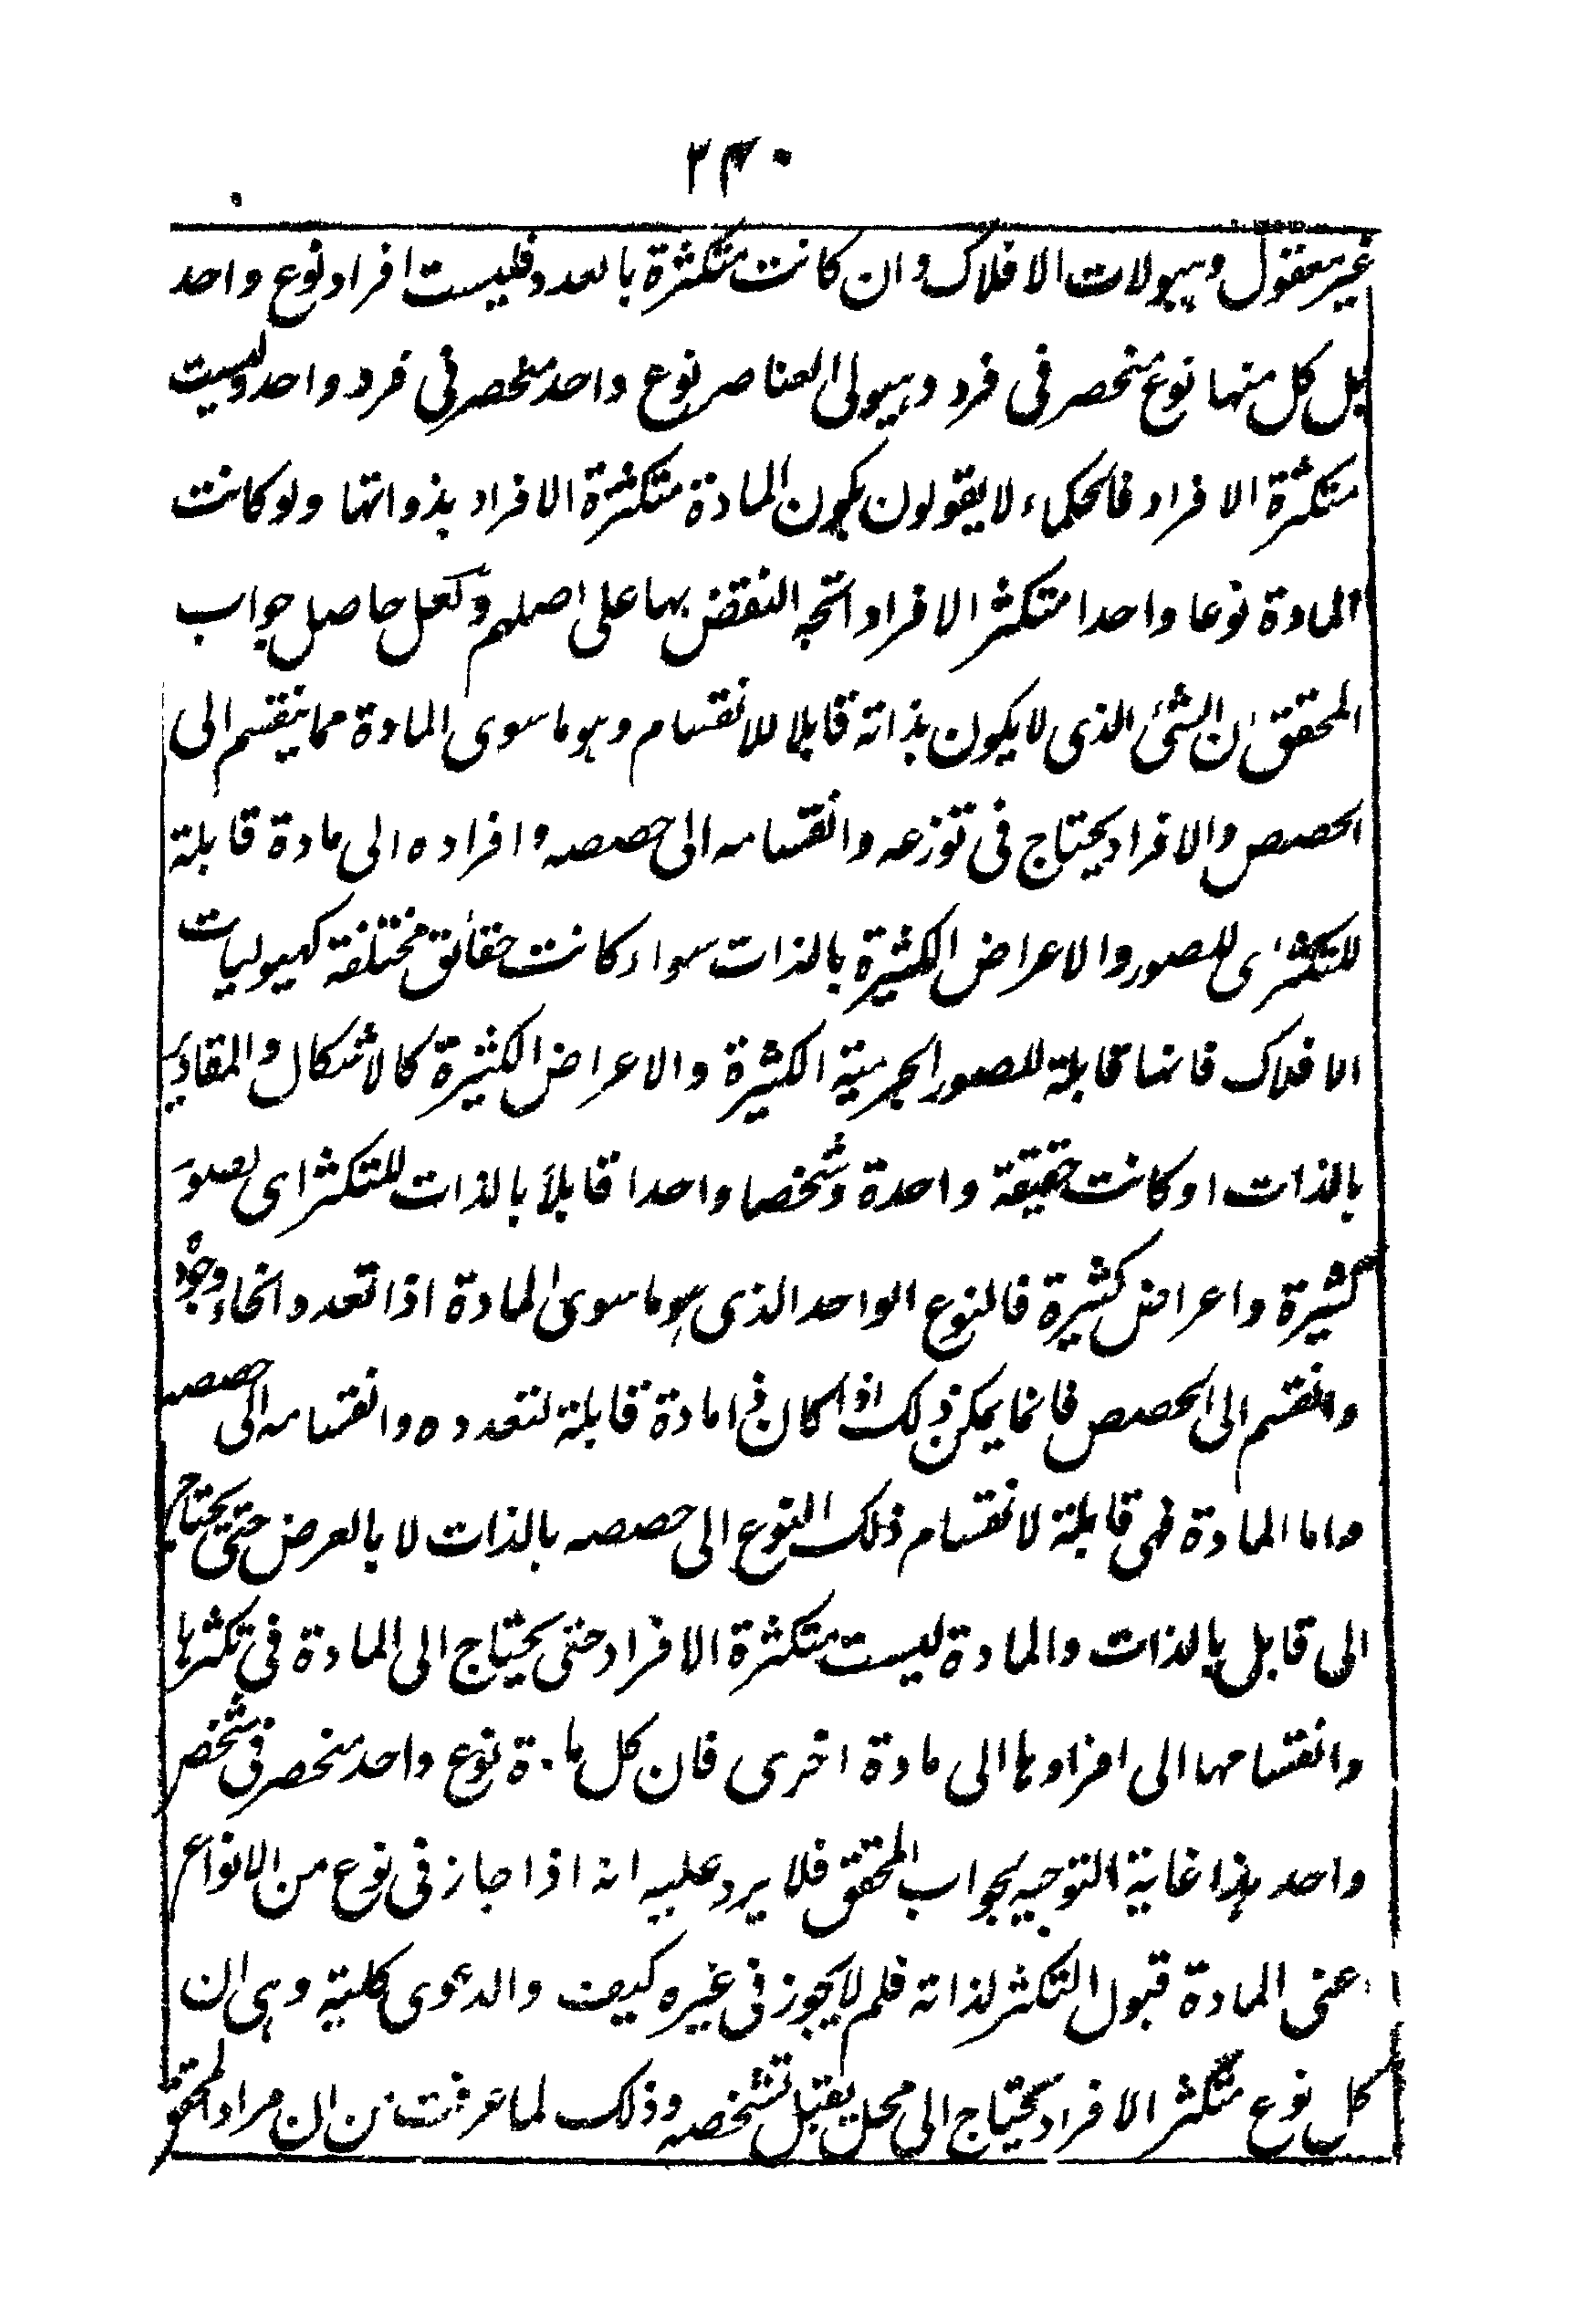 ٢٣٠
غير معقول وهيولات الافلاك وان كانت متكثرة بالعدد فليست افراد نوع واحد
بل كل منها نوع منحصر فى فرد وهيولى العناصر نوع واحد منحصر فى فرد واحد وليست
متكثرة الافراد فالحكماء لا يقولون بكون المادة متكثرة الافراد بذواتها ولو كانت
المادة نوعا واحدا متكثر الافراد اتجه النقض بها على اصلهم ولعل حاصل جواب
المحقق ان الشئ الذى لا يكون بذاته قابلا للانقسام وهو ما سوى المادة مما ينقسم الى
الحصص والافراد يحتاج فى توزعه وانقسامه الى حصصه وافراده الى مادة قابلة
للتكثر اى للصور والاعراض الكثيرة بالذات سواء كانت حقائق مختلفة كهيوليات
الافلاك فانها قابلة للصور الجرمية الكثيرة والاعراض الكثيرة كالاشكال والمقادير
بالذات او كانت حقيقة واحدة وشخصا واحدا قابلا بالذات للتكثر اى لصور
كثيرة واعراض كثيرة فالنوع الواحد الذى هو ما سوى المادة اذا تعدد وانحاء وجوده
وانقسم الى الحصص فانما يمكن ذلك اذا كان ذا مادة قابلة لتعدده وانقسامه الى حصصه
واما المادة فهى قابلة لانقسام ذلك النوع الى حصصه بالذات لا بالعرض حتى يحتاج
الى قابل بالذات والمادة ليست متكثرة الافراد حتى يحتاج الى المادة فى تكثرها
وانقسامها الى افرادها الى مادة اخرى فان كل مادة نوع واحد منحصر فى شخص
واحد هذا غاية التوجيه لجواب المحقق فلا يرد عليه انه اذا جاز فى نوع من الانواع
اعنى المادة قبول التكثر لذاته فلم لا يجوز فى غيره كيف والدعوى كلية وهى ان
كل نوع متكثر الافراد يحتاج الى محل يقبل تشخصه وذلك لما عرفت من ان مراد المحقق